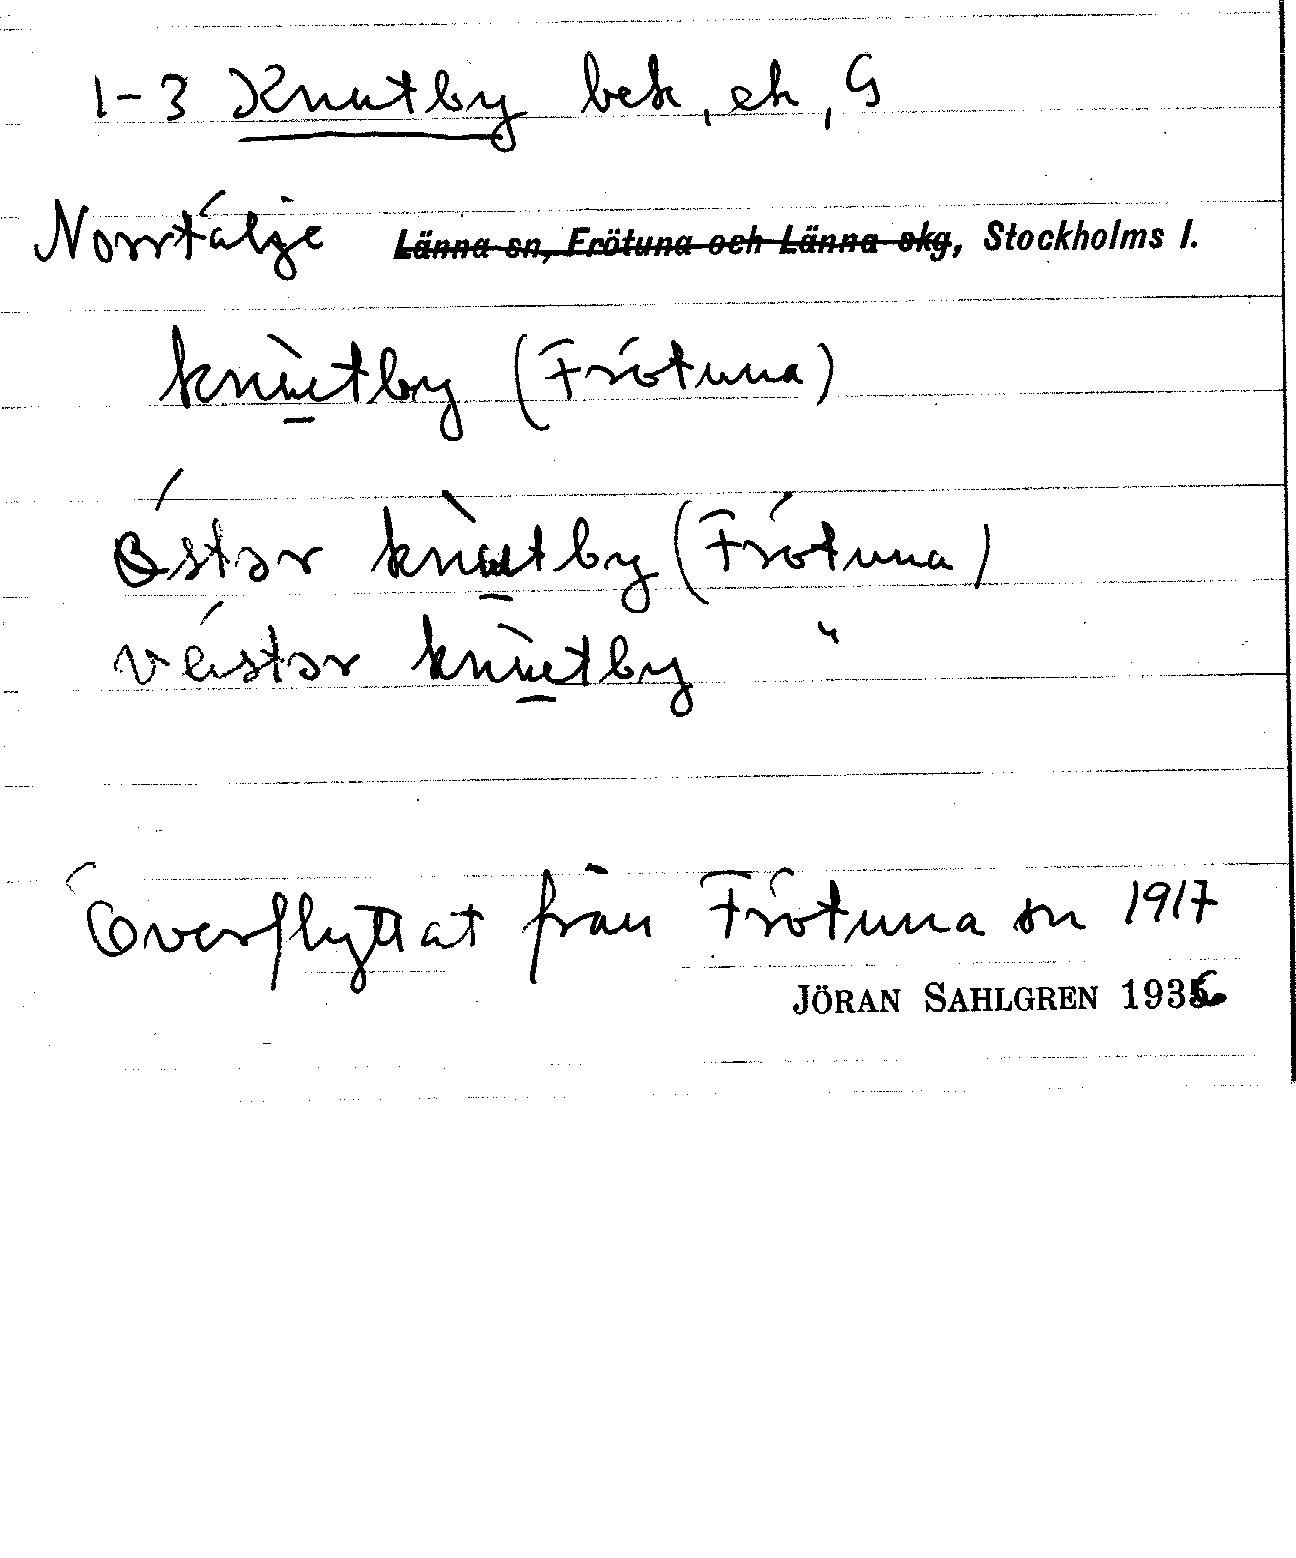 1-3 Knutby bek, ek, G
Norrtälje Länna sn, Frötuna och Länna skg, Stockholms l.
knùtby (Frötuna)
östər knùtby (Frötuna)
västər knùtby "
Överflyttat från Frötuna sn 1917
JÖRAN SAHLGREN 1936